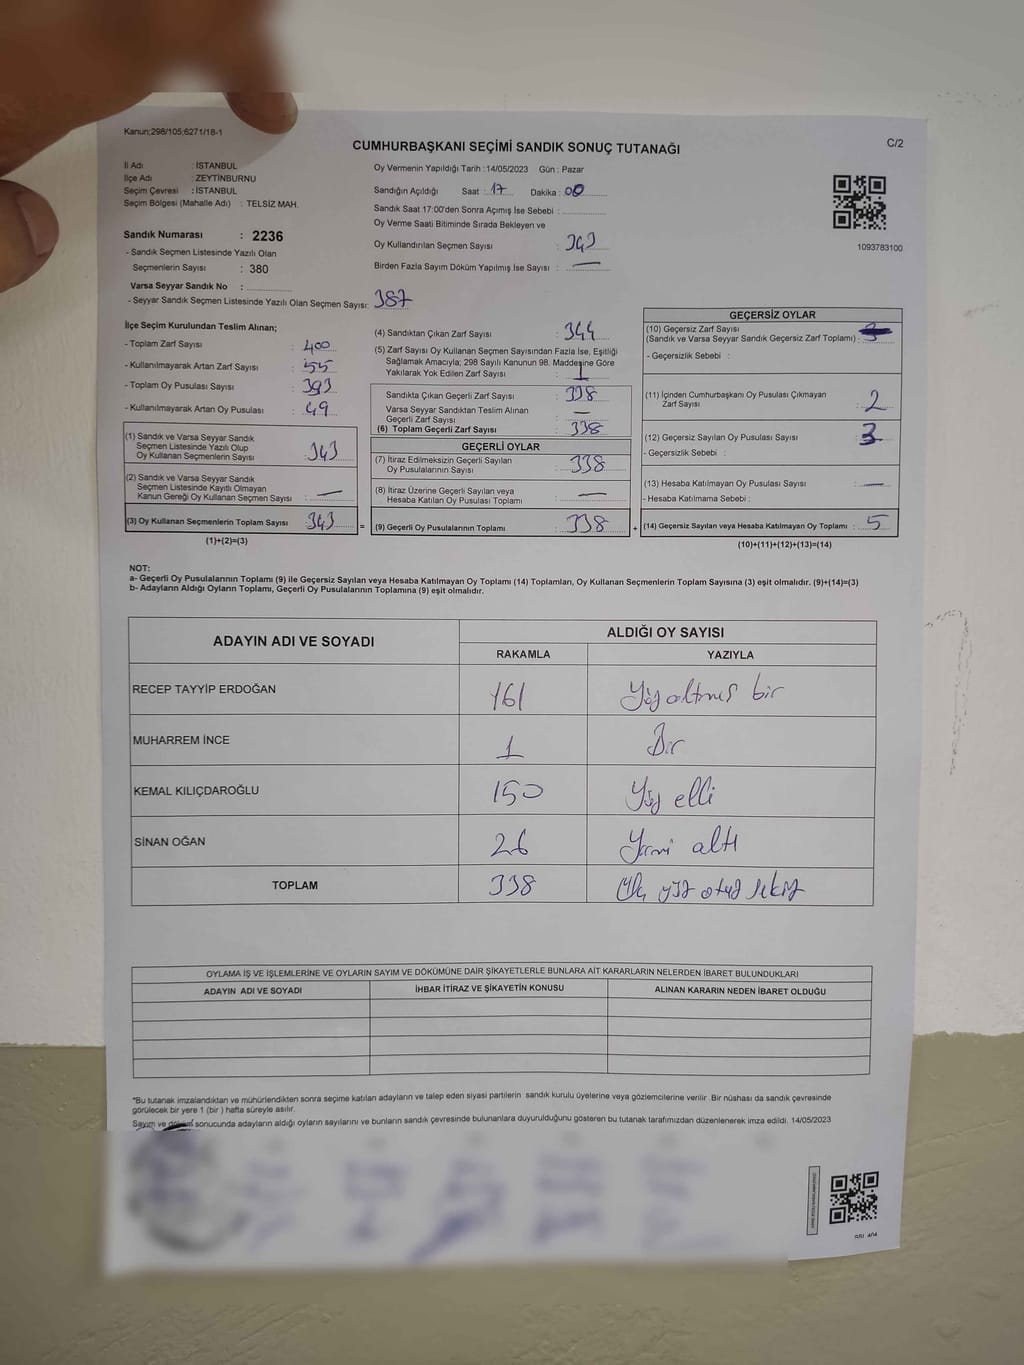 Kanun;298/105;6271/18-1
C/2
CUMHURBAŞKANI SEÇİMİ SANDIK SONUÇ TUTANAĞI
İl Adı : İSTANBUL
İlçe Adı : ZEYTİNBURNU
Seçim Çevresi : İSTANBUL
Seçim Bölgesi (Mahalle Adı) : TELSİZ MAH.
Sandık Numarası : 2236
- Sandık Seçmen Listesinde Yazılı Olan
Seçmenlerin Sayısı : 380
Varsa Seyyar Sandık No :
- Seyyar Sandık Seçmen Listesinde Yazılı Olan Seçmen Sayısı: 387
Oy Vermenin Yapıldığı Tarih :14/05/2023 Gün : Pazar
Sandığın Açıldığı Saat : 17 Dakika : 00
Sandık Saat 17:00'den Sonra Açımış İse Sebebi :
Oy Verme Saati Bitiminde Sırada Bekleyen ve
Oy Kullandırılan Seçmen Sayısı : 343
Birden Fazla Sayım Döküm Yapılmış İse Sayısı : —
1093783100
İlçe Seçim Kurulundan Teslim Alınan;
- Toplam Zarf Sayısı : 400
- Kullanılmayarak Artan Zarf Sayısı : 55
- Toplam Oy Pusulası Sayısı : 393
- Kullanılmayarak Artan Oy Pusulası : 49
(1) Sandık ve Varsa Seyyar Sandık
Seçmen Listesinde Yazılı Olup
Oy Kullanan Seçmenlerin Sayısı : 343
(2) Sandık ve Varsa Seyyar Sandık
Seçmen Listesinde Kayıtlı Olmayan
Kanun Gereği Oy Kullanan Seçmen Sayısı : —
(3) Oy Kullanan Seçmenlerin Toplam Sayısı : 343 =
(1)+(2)=(3)
(4) Sandıktan Çıkan Zarf Sayısı : 344
(5) Zarf Sayısı Oy Kullanan Seçmen Sayısından Fazla İse, Eşitliği
Sağlamak Amacıyla; 298 Sayılı Kanunun 98. Maddesine Göre
Yakılarak Yok Edilen Zarf Sayısı : 1
Sandıkta Çıkan Geçerli Zarf Sayısı : 338
Varsa Seyyar Sandıktan Teslim Alınan
Geçerli Zarf Sayısı : —
(6) Toplam Geçerli Zarf Sayısı : 338
GEÇERLİ OYLAR
(7) İtiraz Edilmeksizin Geçerli Sayılan
Oy Pusulalarının Sayısı : 338
(8) İtiraz Üzerine Geçerli Sayılan veya
Hesaba Katılan Oy Pusulası Toplamı : —
(9) Geçerli Oy Pusulalarının Toplamı : 338 +
GEÇERSİZ OYLAR
(10) Geçersiz Zarf Sayısı
(Sandık ve Varsa Seyyar Sandık Geçersiz Zarf Toplamı) :
- Geçersizlik Sebebi :
(11) İçinden Cumhurbaşkanı Oy Pusulası Çıkmayan
Zarf Sayısı : 2
(12) Geçersiz Sayılan Oy Pusulası Sayısı : 3
- Geçersizlik Sebebi :
(13) Hesaba Katılmayan Oy Pusulası Sayısı : —
- Hesaba Katılmama Sebebi :
(14) Geçersiz Sayılan veya Hesaba Katılmayan Oy Toplamı : 5
(10)+(11)+(12)+(13)=(14)
NOT:
a- Geçerli Oy Pusulalarının Toplamı (9) ile Geçersiz Sayılan veya Hesaba Katılmayan Oy Toplamı (14) Toplamları, Oy Kullanan Seçmenlerin Toplam Sayısına (3) eşit olmalıdır. (9)+(14)=(3)
b- Adayların Aldığı Oyların Toplamı, Geçerli Oy Pusulalarının Toplamına (9) eşit olmalıdır.
ADAYIN ADI VE SOYADI
ALDIĞI OY SAYISI
RAKAMLA YAZIYLA
RECEP TAYYİP ERDOĞAN 161 Yüz altmış bir
MUHARREM İNCE 1 Bir
KEMAL KILIÇDAROĞLU 150 Yüz elli
SİNAN OĞAN 26 Yirmi altı
TOPLAM 338 Üç yüz otuz sekiz
OYLAMA İŞ VE İŞLEMLERİNE VE OYLARIN SAYIM VE DÖKÜMÜNE DAİR ŞİKAYETLERLE BUNLARA AİT KARARLARIN NELERDEN İBARET BULUNDUKLARI
ADAYIN ADI VE SOYADI İHBAR İTİRAZ VE ŞİKAYETİN KONUSU ALINAN KARARIN NEDEN İBARET OLDUĞU
*Bu tutanak imzalandıktan ve mühürlendikten sonra seçime katılan adayların ve talep eden siyasi partilerin sandık kurulu üyelerine veya gözlemcilerine verilir .Bir nüshası da sandık çevresinde
görülecek bir yere 1 (bir ) hafta süreyle asılır.
Sayım ve döküm sonucunda adayların aldığı oyların sayılarını ve bunların sandık çevresinde bulunanlara duyurulduğunu gösteren bu tutanak tarafımızdan düzenlenerek imza edildi. 14/05/2023